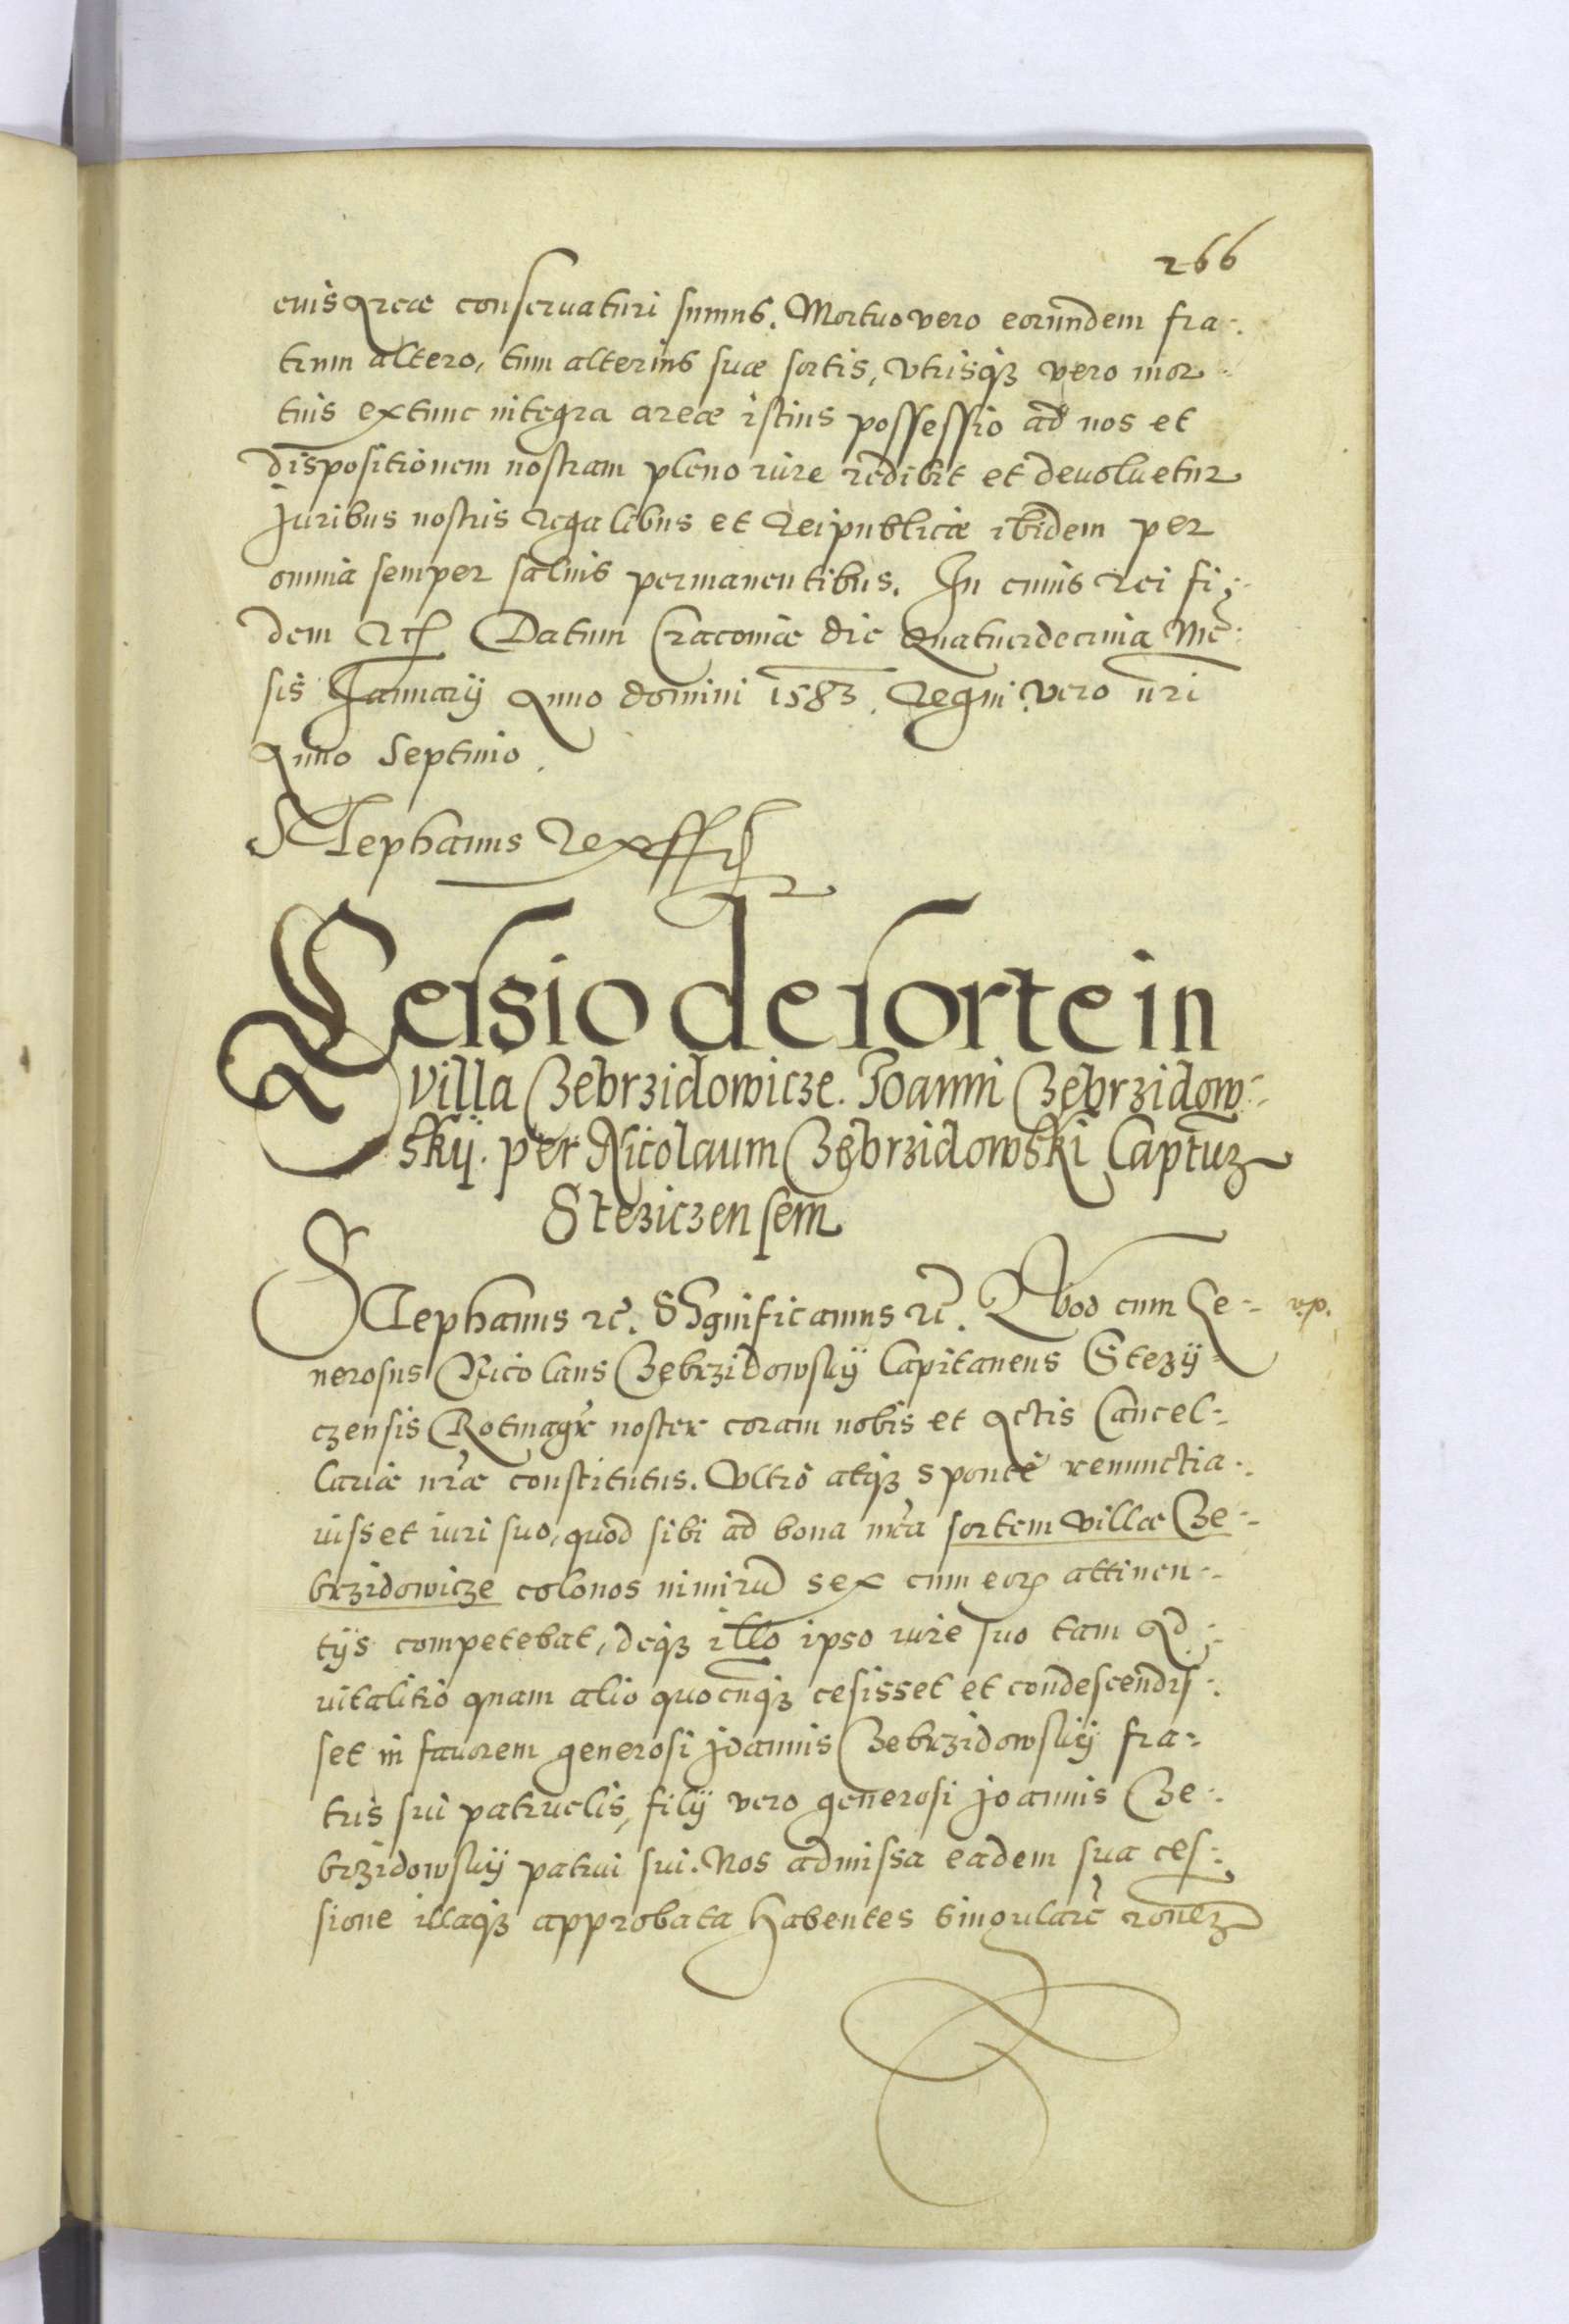 266
euis areae conseruaturi sumus. Mortuo vero eorundem fra-
trum altero, tum alterius suae sortis, vtrisqꝫ vero mor-
tuis extunc integra areae istius possessio ad nos et
dispositionem nostram pleno iure redibit et deuoluetur
Juribus nostris regalibus et Reipublicae ibidem per
omnia semper saluis permanentibus. In cuius rei fi-
dem etc Datum Cracoviae die Quatuordecima Mẽ-
sis Januarij Anno domini 1583. Regni vero nr̃i
Anno Septimo.
Stephanus Rex sst
Cessio de sorte in
villa Zebrzidowicze. Joanni Zębrzidow-
skij. per Nicolaum Zębrzidowski Capituꝫ
Steziczensem
Stephanus etc. Significamus etc. Quod cum Ge- v.p.
nerosus Nicolaus Zębrzidowskij Capitaneus Stezij-
czensis Rotmagr̃ noster coram nobis et Actis Cancel-
lariae nr̃ae constitutus. Vltro atqꝫ sponte renunctia-
uisset iuri suo, quod sibi ad bona nr̃a sortem villae Ze-
brzidowicze colonos nimirũ sex cum eoꝝ attinen-
tijs competebat, deqꝫ illo ipso iure suo tam Ad-
uitalitio quam alio quocunqꝫ cesisset et condescendis-
set in fauorem generosi Joannis Zebrzidowskij fra-
tris sui patruelis, filij vero generosi Joannis Ze-
brzidowskij patrui sui. Nos admissa eadem sua ces-
sione illaqꝫ approbata habentes singularẽ rõneꝫ